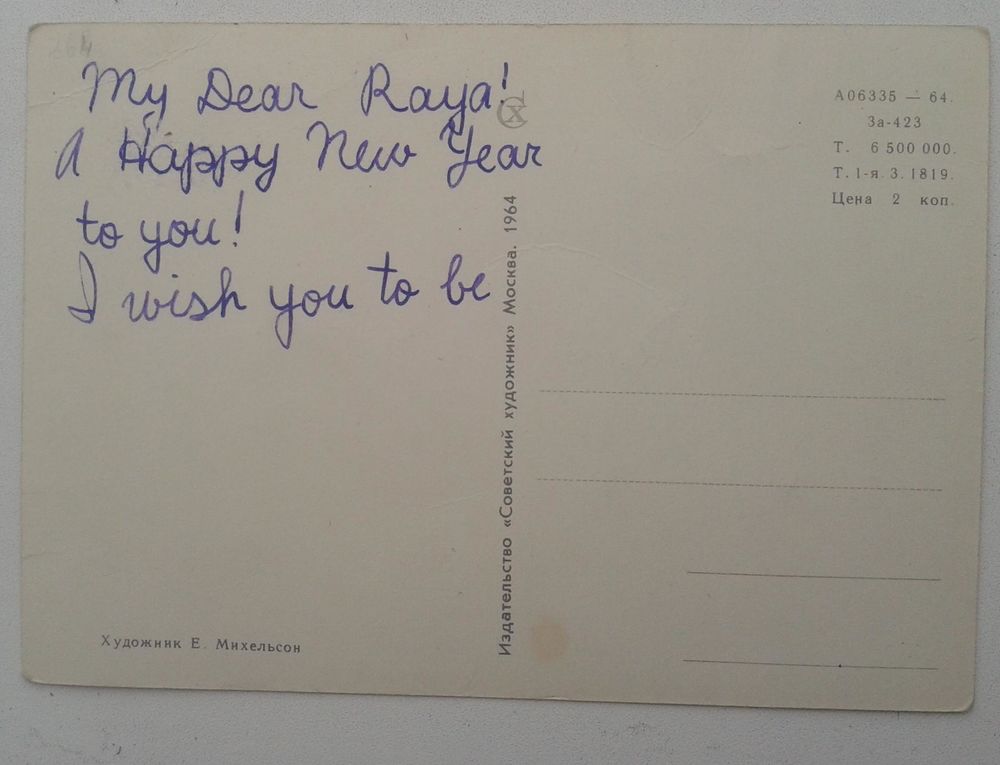 My Dear Raya!
A Happy New Year
to you!
I wish you to be
Художник Е. Михельсон
Издательство «Советский художник» Москва. 1964
А06335 — 64.
За-423
Т. 6 500 000.
Т. 1-я. 3. 1819.
Цена 2 коп.